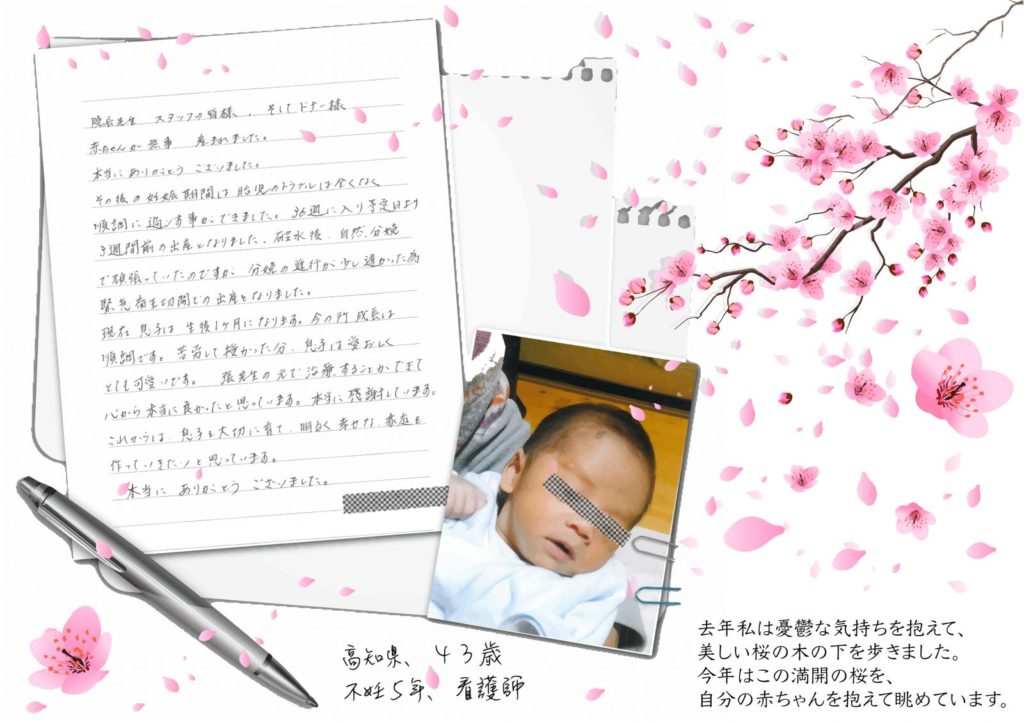 院長先生 スタッフの皆様、そしてドナー様
赤ちゃんが無事 産まれました。
本当にありがとう ございました。
その後の妊娠期間は 胎児のトラブルは全くなく
順調に過ごす事ができました。36週に入り予定日より
3週間前の出産となりました。破水後、自然分娩
で頑張っていたのですが、分娩の進行が少し遅かった為
緊急帝王切開での出産となりました。
現在 息子は 生後1ヶ月になります。今の所 成長は
順調です。苦労して授かった分、息子は愛おしく
とても可愛いです。 張先生の元で治療することができて
心から本当に良かったと思っています。本当に感謝しています。
これからは、息子を大切に育て、明るく幸せな家庭を
作っていきたいと思っています。
本当に ありがとう ございました。
高知県、43歳
不妊5年、看護師
去年私は憂鬱な気持ちを抱えて、
美しい桜の木の下を歩きました。
今年はこの満開の桜を、
自分の赤ちゃんを抱えて眺めています。